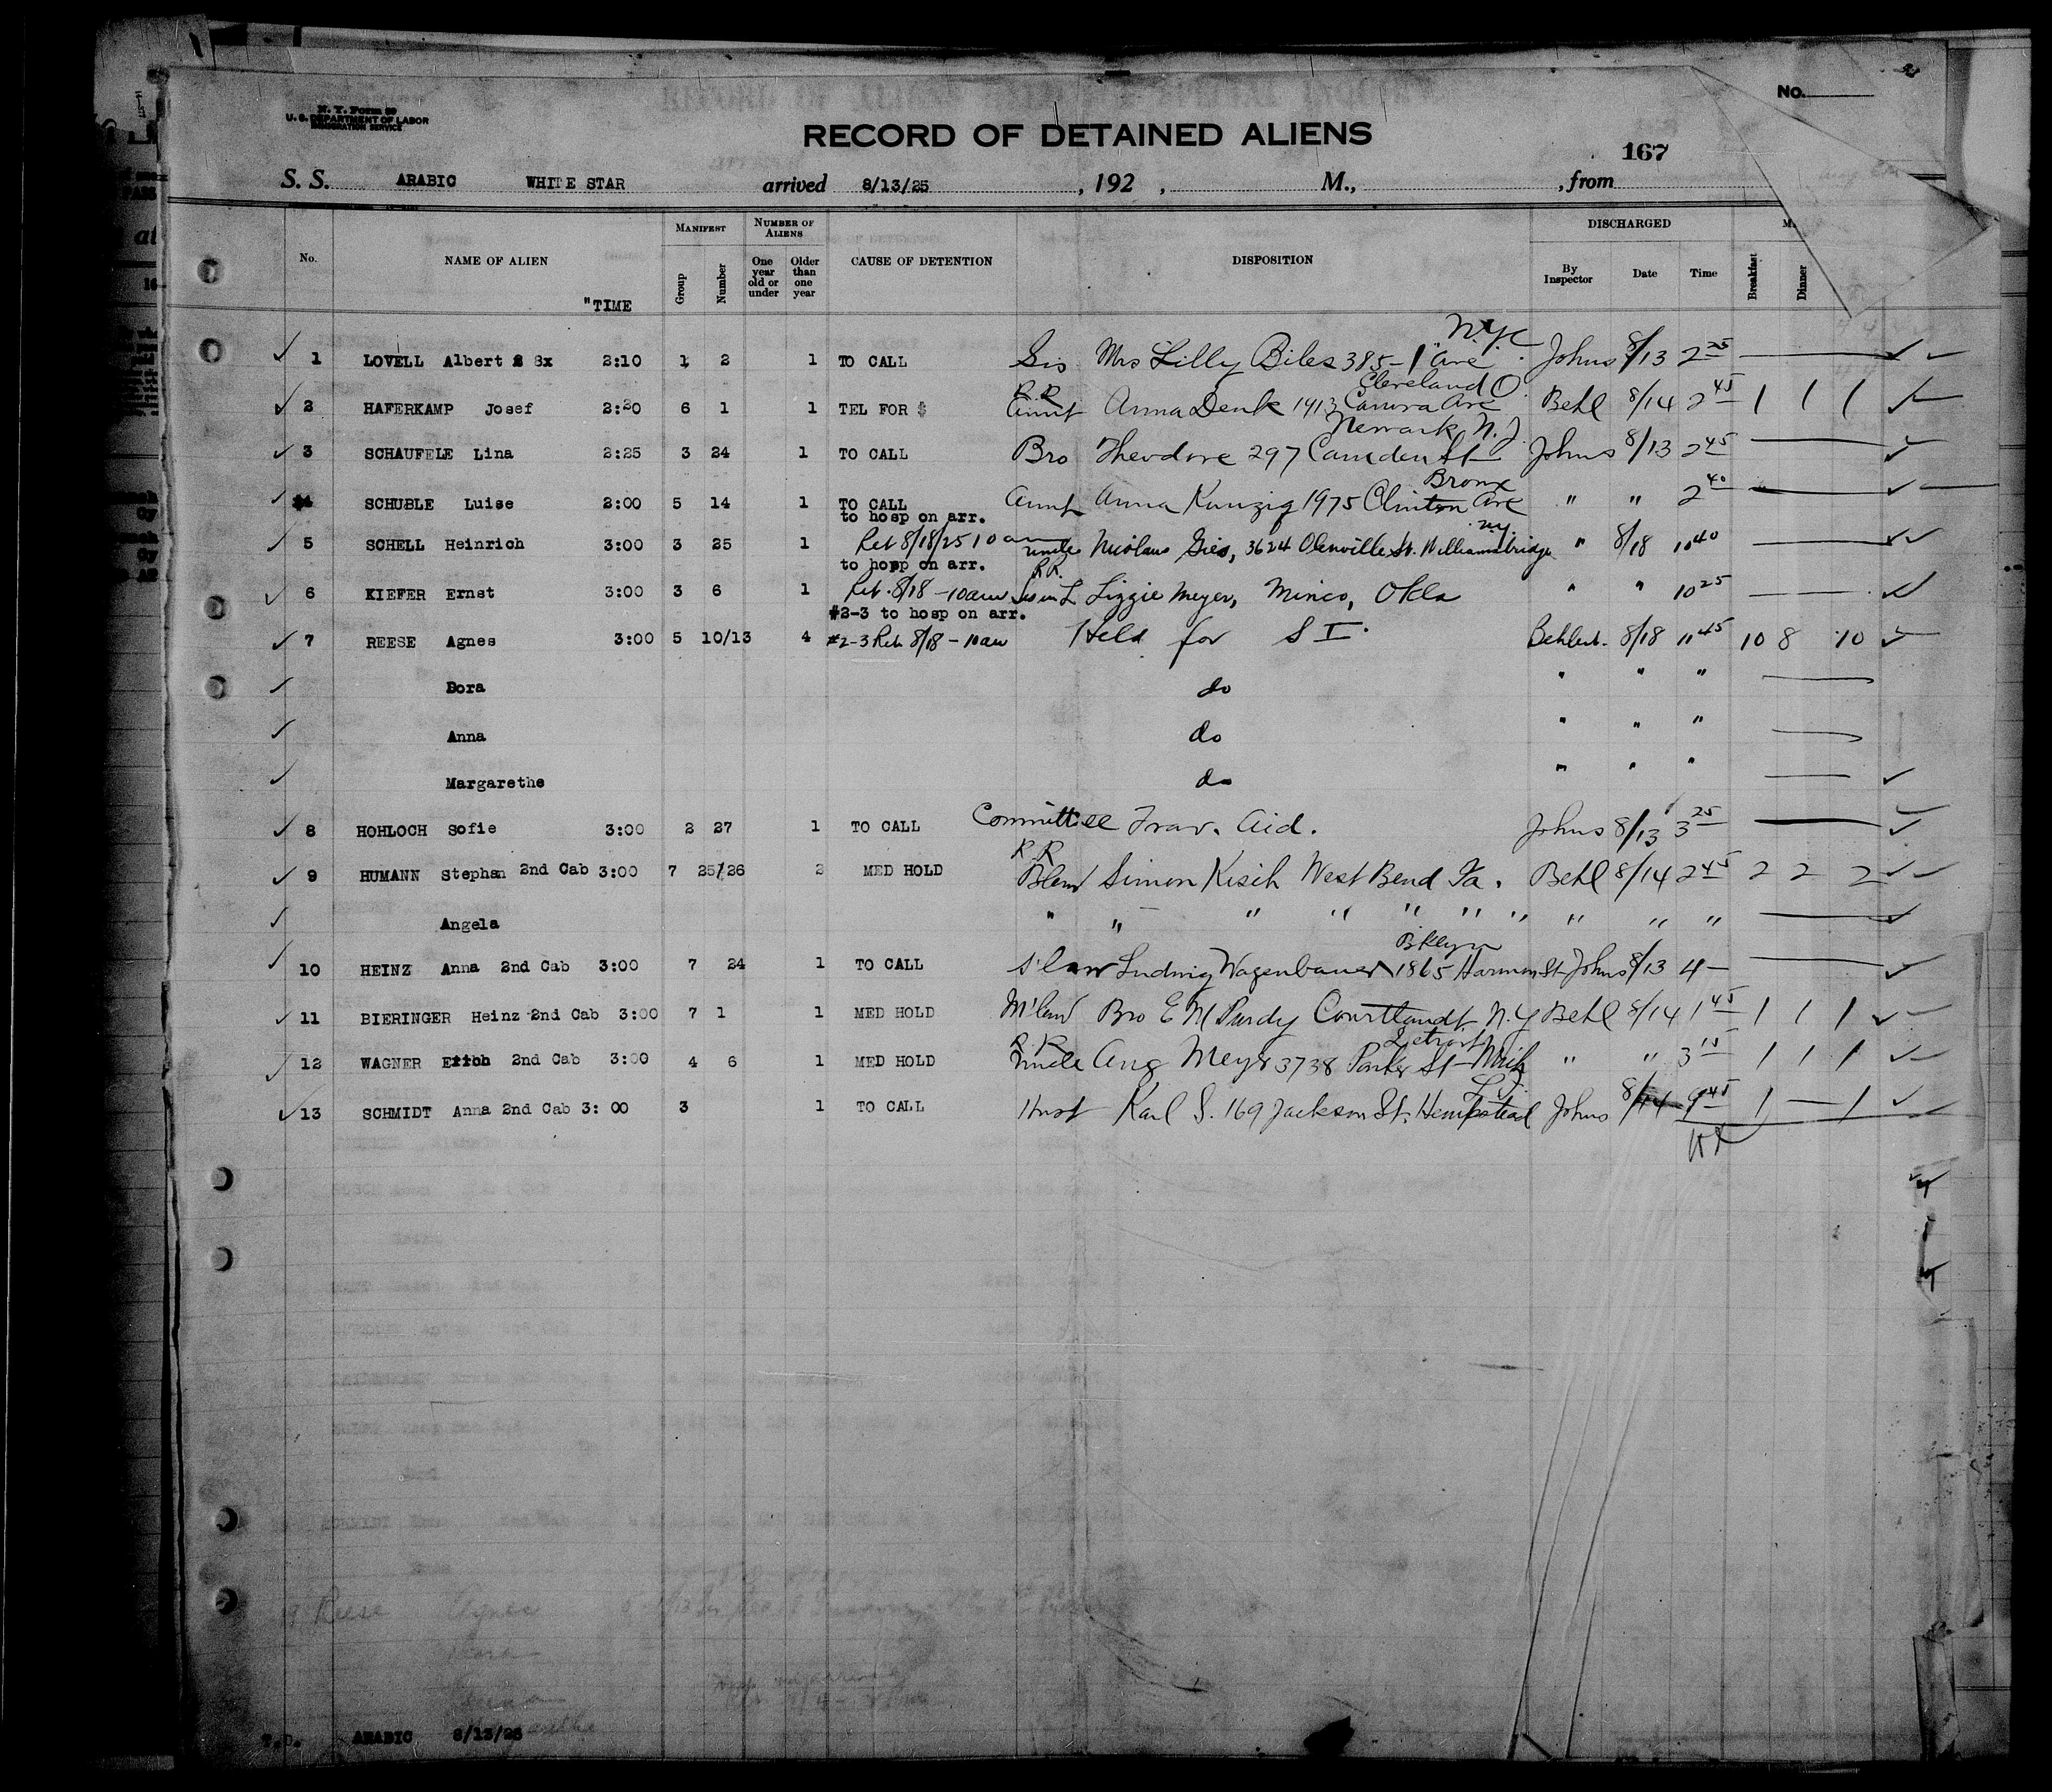 No.
N. Y. Form 99
U. S. DEPARTMENT OF LABOR
IMMIGRATION SERVICE
RECORD OF DETAINED ALIENS
167
S. S. ARABIC WHITE STAR arrived 8/13/25, 192 , M., , from
No. NAME OF ALIEN "TIME MANIFEST Group Number NUMBER OF ALIENS One year old or under Older than one year CAUSE OF DETENTION DISPOSITION DISCHARGED By Inspector Date Time Breakfast Dinner
N.Y.C
1 LOVELL Albert S Sx 2:10 1 2 1 TO CALL Sis Mrs Lilly Biles 385-1 Ave Johns 8/13 2 25
R.R Cleveland O.
2 HAFERKAMP Josef 2:20 6 1 1 TEL FOR $ Aunt Anna Denk 1413 Ave Behl 8/14 2 45 1 1 1
Newark N.J.
3 SCHAUFELE Lina 2:25 3 24 1 TO CALL Bro Theodore 297 Camden St Johns 8/13 2 45
Bronx
4 SCHUBLE Luise 2:00 5 14 1 TO CALL Aunt Anna Kunzig 1975 Clinton Ave " " 2 40
to hosp on arr.
N.Y.
5 SCHELL Heinrich 3:00 3 25 1 Ret 8/18/25 10 am uncle Nicolaus Gies, 3624 Olenville St. Williamsbridge " 8/18 10 40
to hosp on arr.
R.R.
6 KIEFER Ernst 3:00 3 6 1 Ret. 8/18 - 10am Sis in L Lizzie Meyer, Minco, Okla " " 10 25
#2-3 to hosp on arr.
7 REESE Agnes 3:00 5 10/13 4 #2-3 Ret 8/18 - 10am Held for S I. 8/18 11 45 10 8 10
Dora do " " "
Anna do " " "
Margarethe do " " "
8 HOHLOCH Sofie 3:00 2 27 1 TO CALL Committee Trav. Aid. Johns 8/13 3 25
R.R
9 HUMANN Stephan 2nd Cab 3:00 7 25/26 2 MED HOLD Blaw Simon Kisch West Bend Ia. Behl 8/14 2 45 2 2 2
Angela " " " " " " " " " "
Bklyn
10 HEINZ Anna 2nd Cab 3:00 7 24 1 TO CALL s'law Ludwig Wagenbauer 1865 Harman St Johns 8/13 4 -
11 BIERINGER Heinz 2nd Cab 3:00 7 1 1 MED HOLD M'law Bro E M Purdy Courtlandt N.Y Behl 8/14 1 45 1 1 1
R.R. Detroit
12 WAGNER Erich 2nd Cab 3:00 4 6 1 MED HOLD Uncle Aug Meyr 3738 Parker St Mich " " 3 15 1 1 1
L.I.
13 SCHMIDT Anna 2nd Cab 3:00 3 1 TO CALL Husb Karl S. 169 Jackson St. Hempstead Johns 8/14 9 45 1 — 1
Reese Agnes
ARABIC 8/13/25